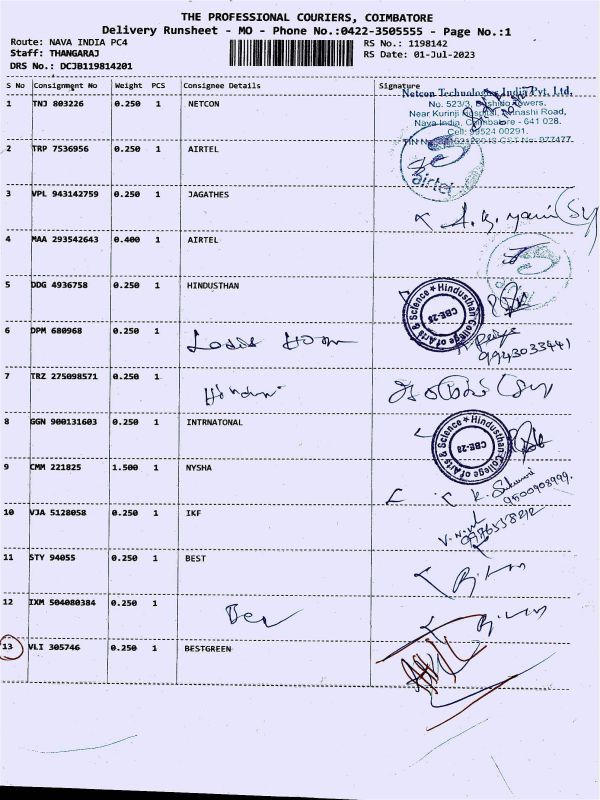 THE PROFESSIONAL COURIERS, COIMBATORE
Delivery Runsheet - MO - Phone No.:0422-3505555 - Page No.:1
Route: NAVA INDIA PC4 RS No.: 1198142
Staff: THANGARAJ RS Date: 01-Jul-2023
DRS No.: DCJB119814201
S No Consignment No Weight PCS Consignee Details Signature
Netcon Technologies India Pvt. Ltd.
1 TNJ 803226 0.250 1 NETCON
No. 523/3, Towers,
Near Kurinji Hospital, Avinashi Road,
Nava India, Coimbatore - 641 028.
Cell: 99524 00291.
2 TRP 7536956 0.250 1 AIRTEL
airtel
3 VPL 943142759 0.250 1 JAGATHES
4 MAA 293542643 0.400 1 AIRTEL
5 DDG 4936758 0.250 1 HINDUSTHAN
Hindusthan College of Arts & Science
CBE-28
6 DPM 680968 0.250 1
9943033441
7 TRZ 275098571 0.250 1
8 GGN 900131603 0.250 1 INTRNATONAL
Hindusthan College of Arts & Science
CBE-28
9 CMM 221825 1.500 1 NYSHA
9500908999.
10 VJA 5128058 0.250 1 IKF
11 STY 94055 0.250 1 BEST
12 IXM 504080384 0.250 1
13 VLI 305746 0.250 1 BESTGREEN